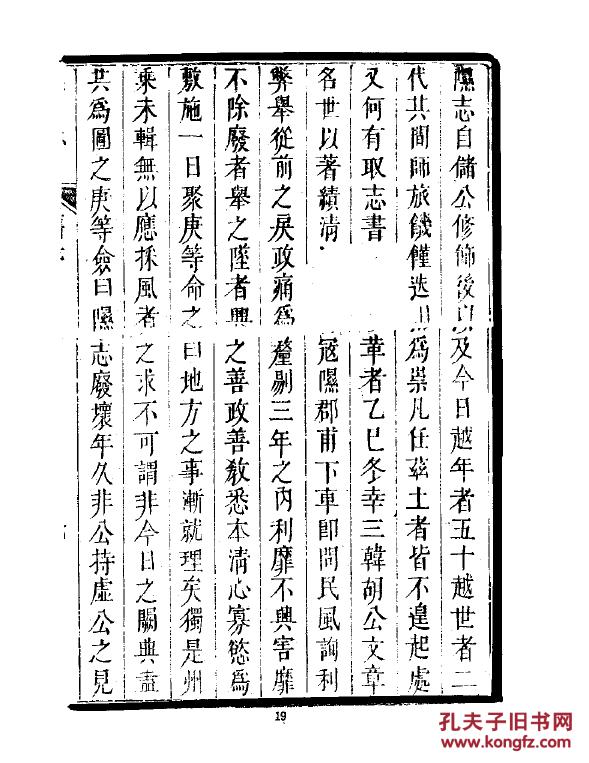 隰志自儲公修飾後以及今日越年者五十越世者二
代共間師旅饑饉迭為祟凡任茲土者皆不遑起處
又何有取志書者乙巳冬幸三韓胡公文章
名世以著績清冦隰郡甫下車即問民風詢利
弊舉從前之戾政痛為釐剔三年之內利靡不興害靡
不除廢者舉之墜者興之善政善敎悉本清心寡慾為
敷施一日聚庚等命之曰地方之事漸就理矣獨是州
乘未輯無以應採風者之求不可謂非今日之闕典盍
共為圖之庚等僉曰隰志廢壞年久非公持虛公之見
19
孔夫子旧书网
www.kongfz.com